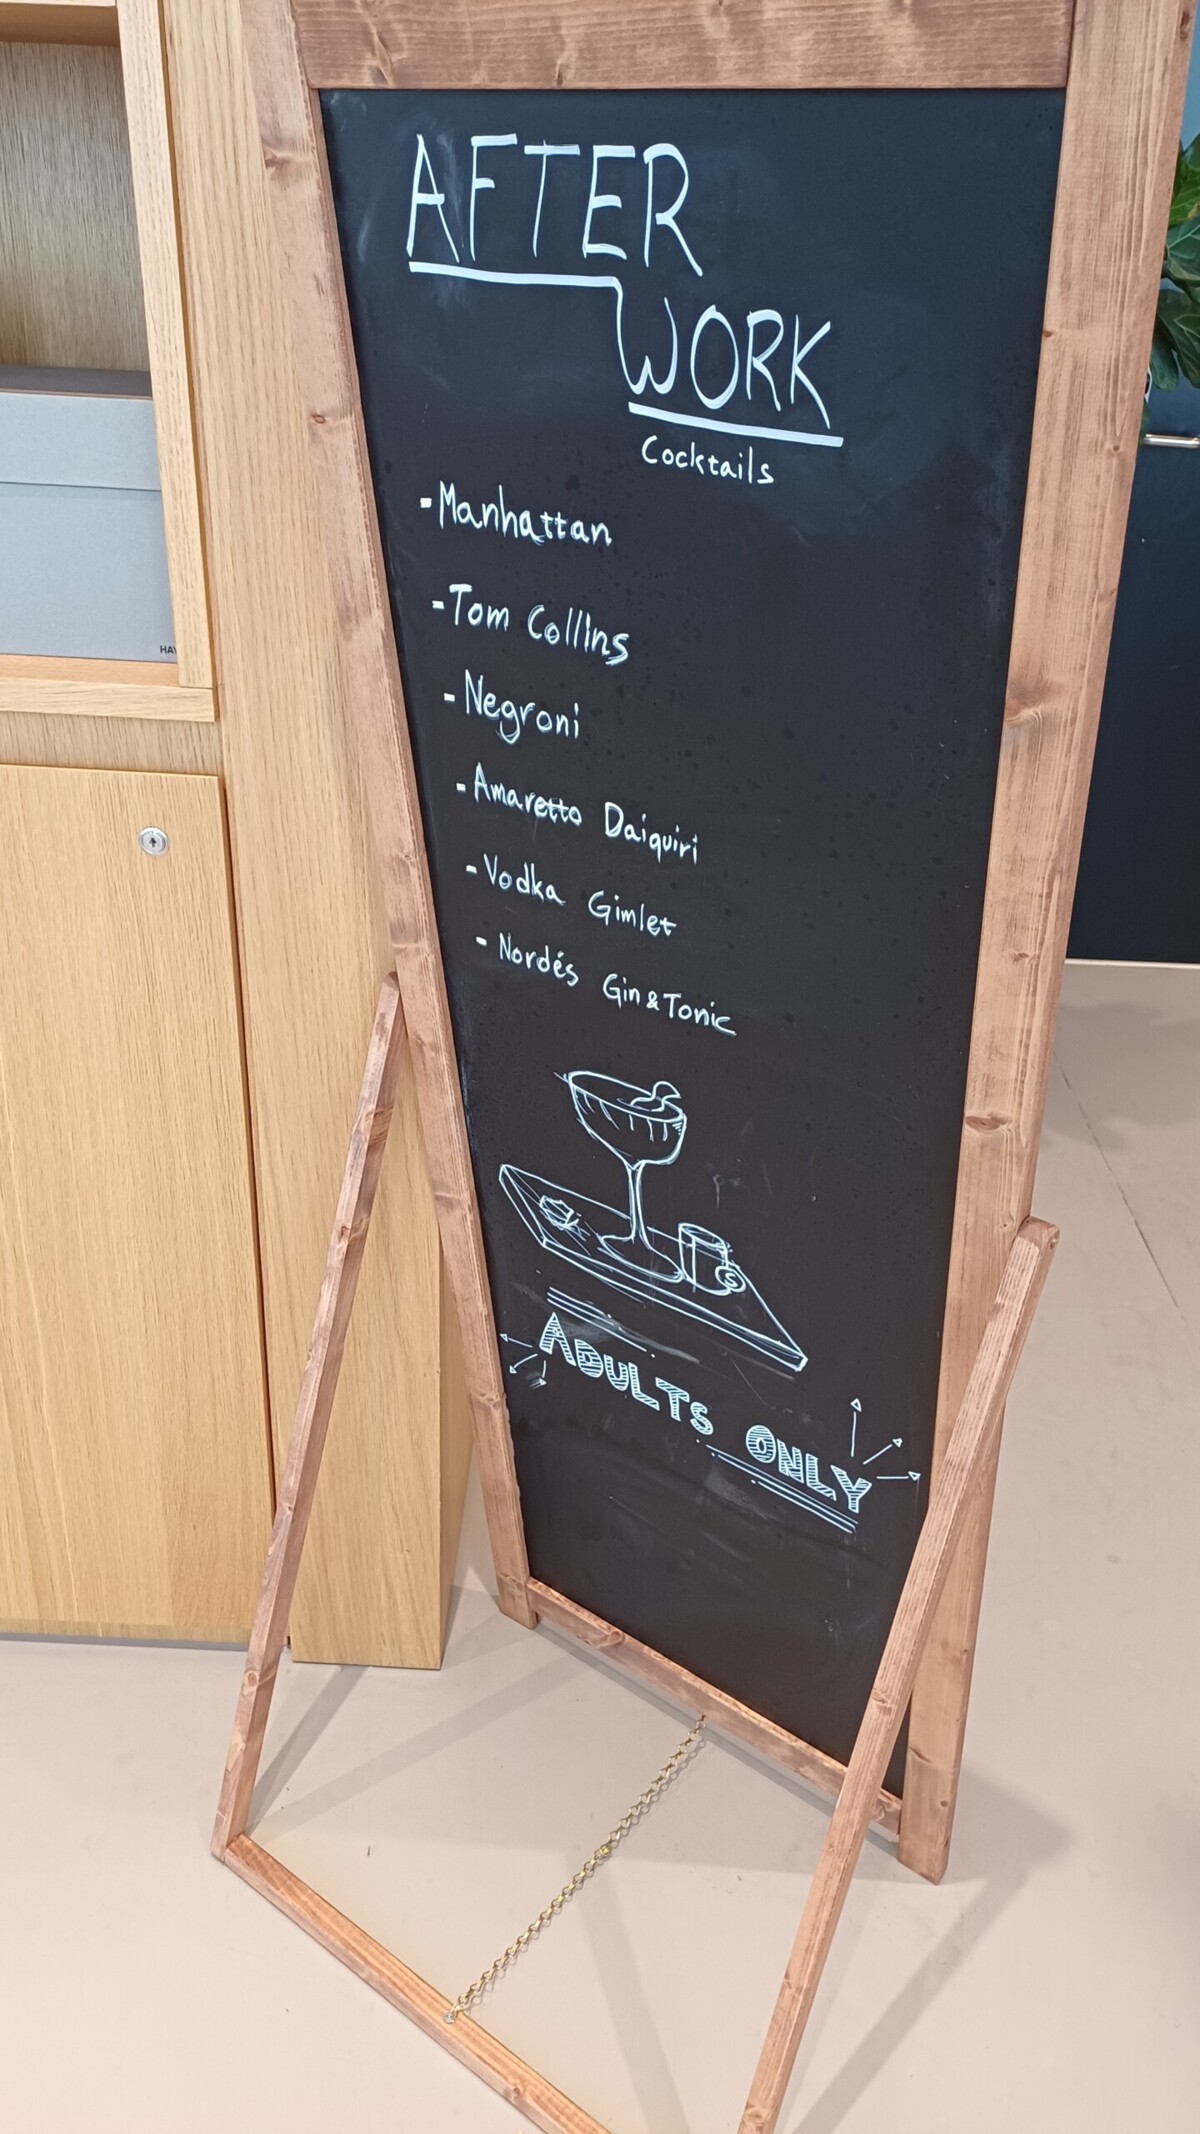 AFTER
WORK
Cocktails
-Manhattan
-Tom Collins
-Negroni
-Amaretto Daiquiri
-Vodka Gimlet
- Nordés Gin & Tonic
ADULTS ONLY
HAY